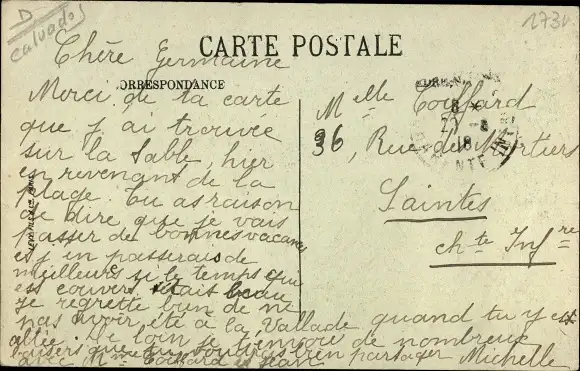 D
Calvados
1730
Chère Germaine
CARTE POSTALE
CORRESPONDANCE
Merci de ta carte
que j'ai trouvée
sur la table, hier
en revenant de la
plage. Tu as raison
de dire que je vais
passer de bonnes vacances
et j'en passerais de
meilleurs si le temps qui
est couvert était beau
Je regrette bien de ne
pas avoir été à la Vallade quand tu y es
allée. De loin je t'envoie de nombreux
baisers que tu voudras bien partager
avec Mme Touffard et Jean Michelle
Melle Touffard
36, Rue des Mortiers
Saintes
Chte Infre